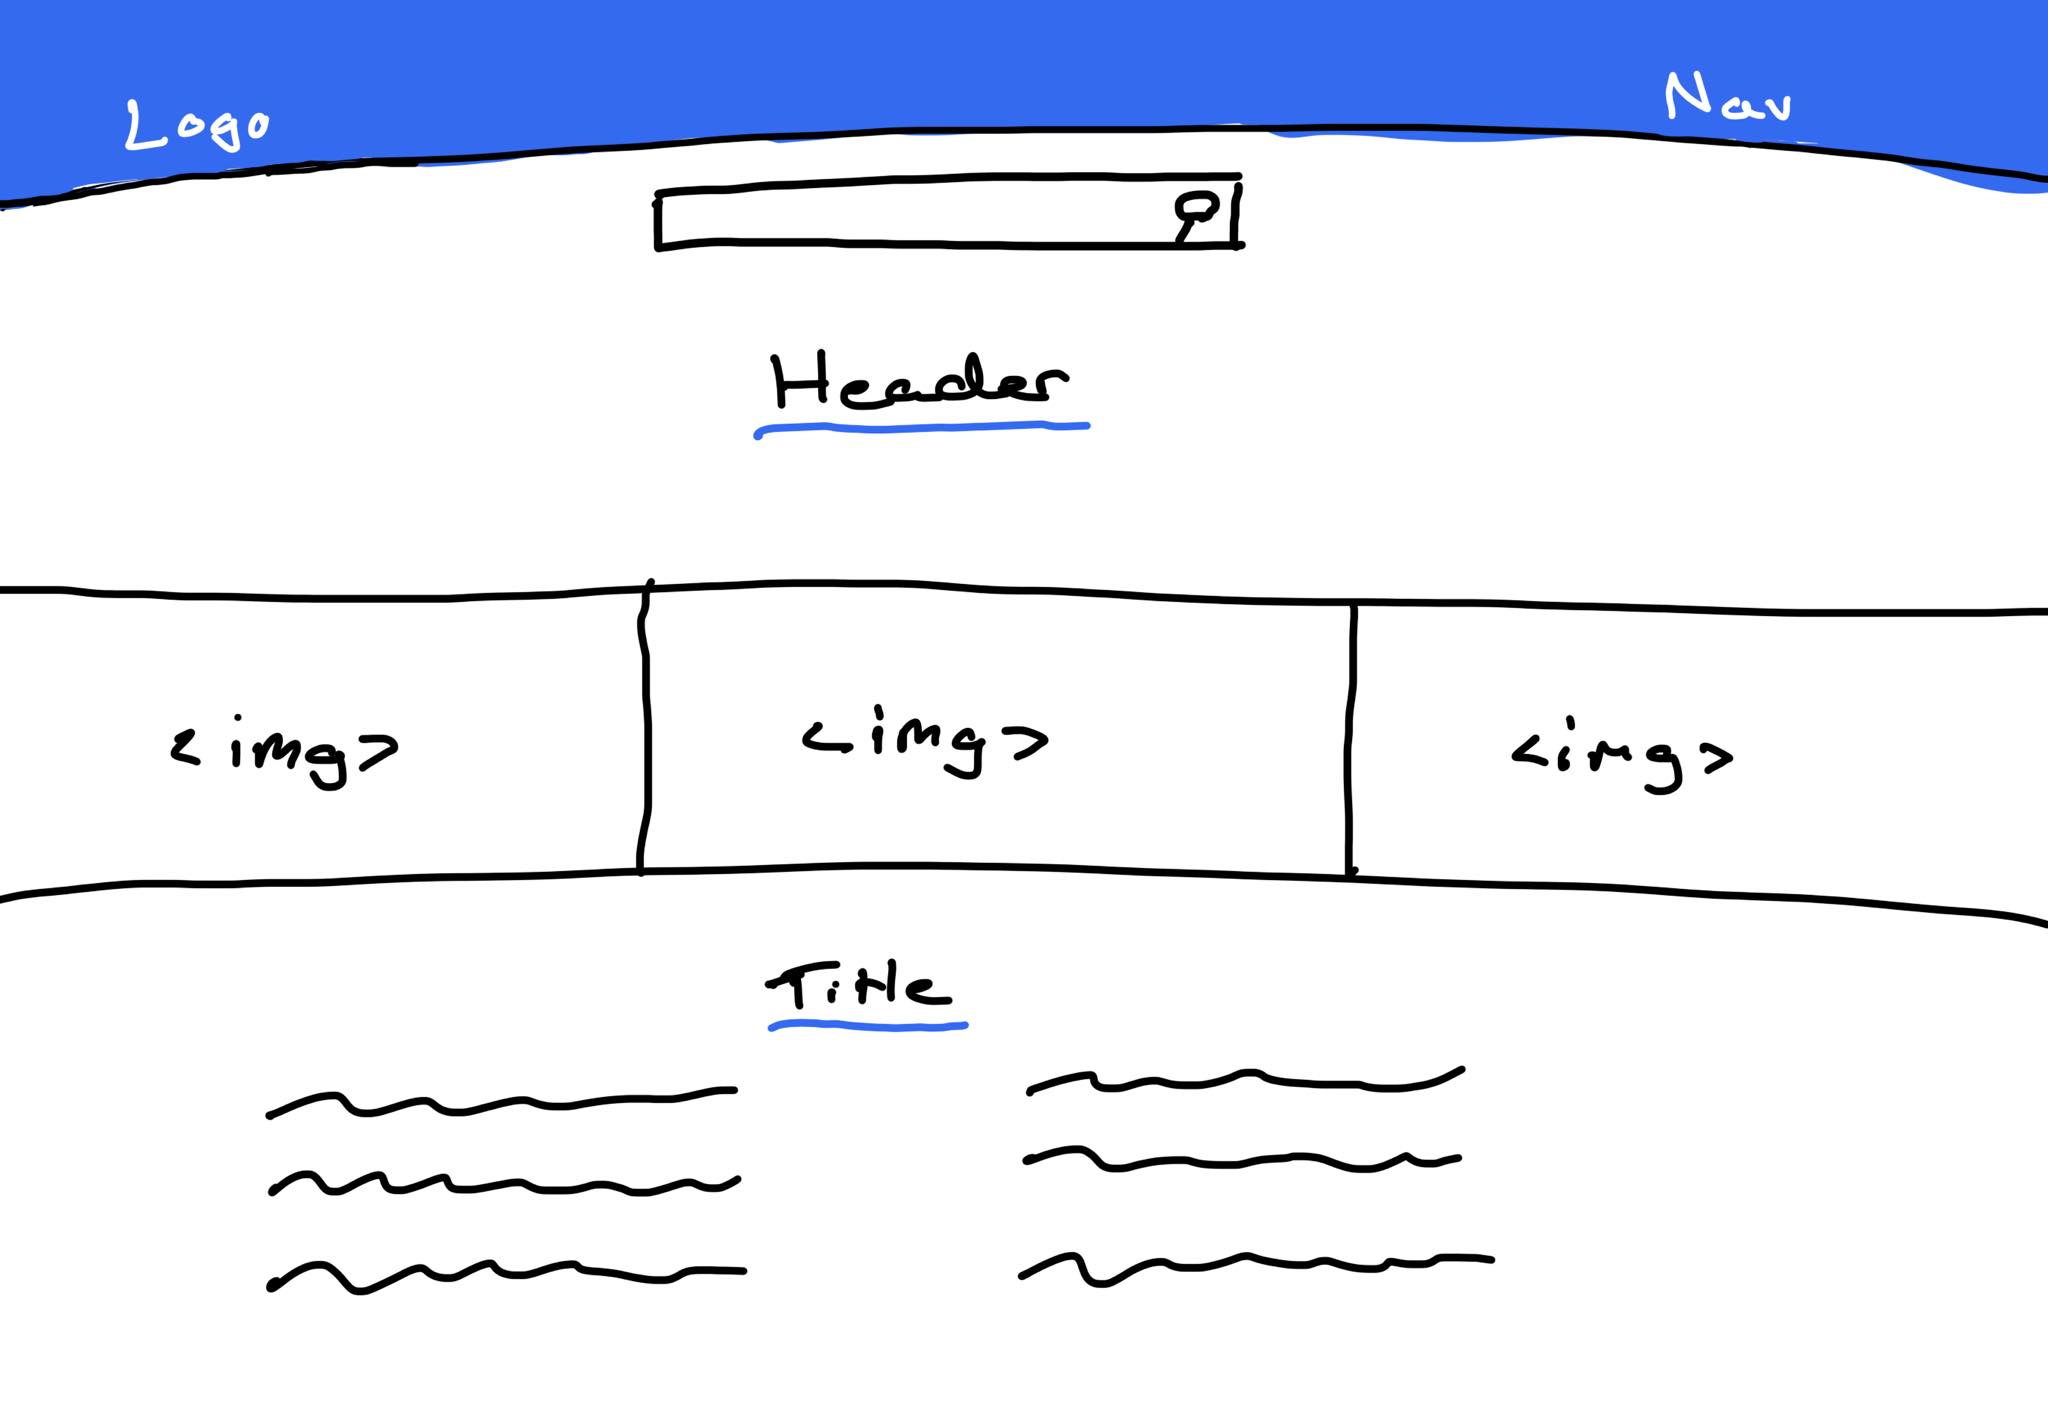 Logo Nav
Header
<img> <img> <img>
Title